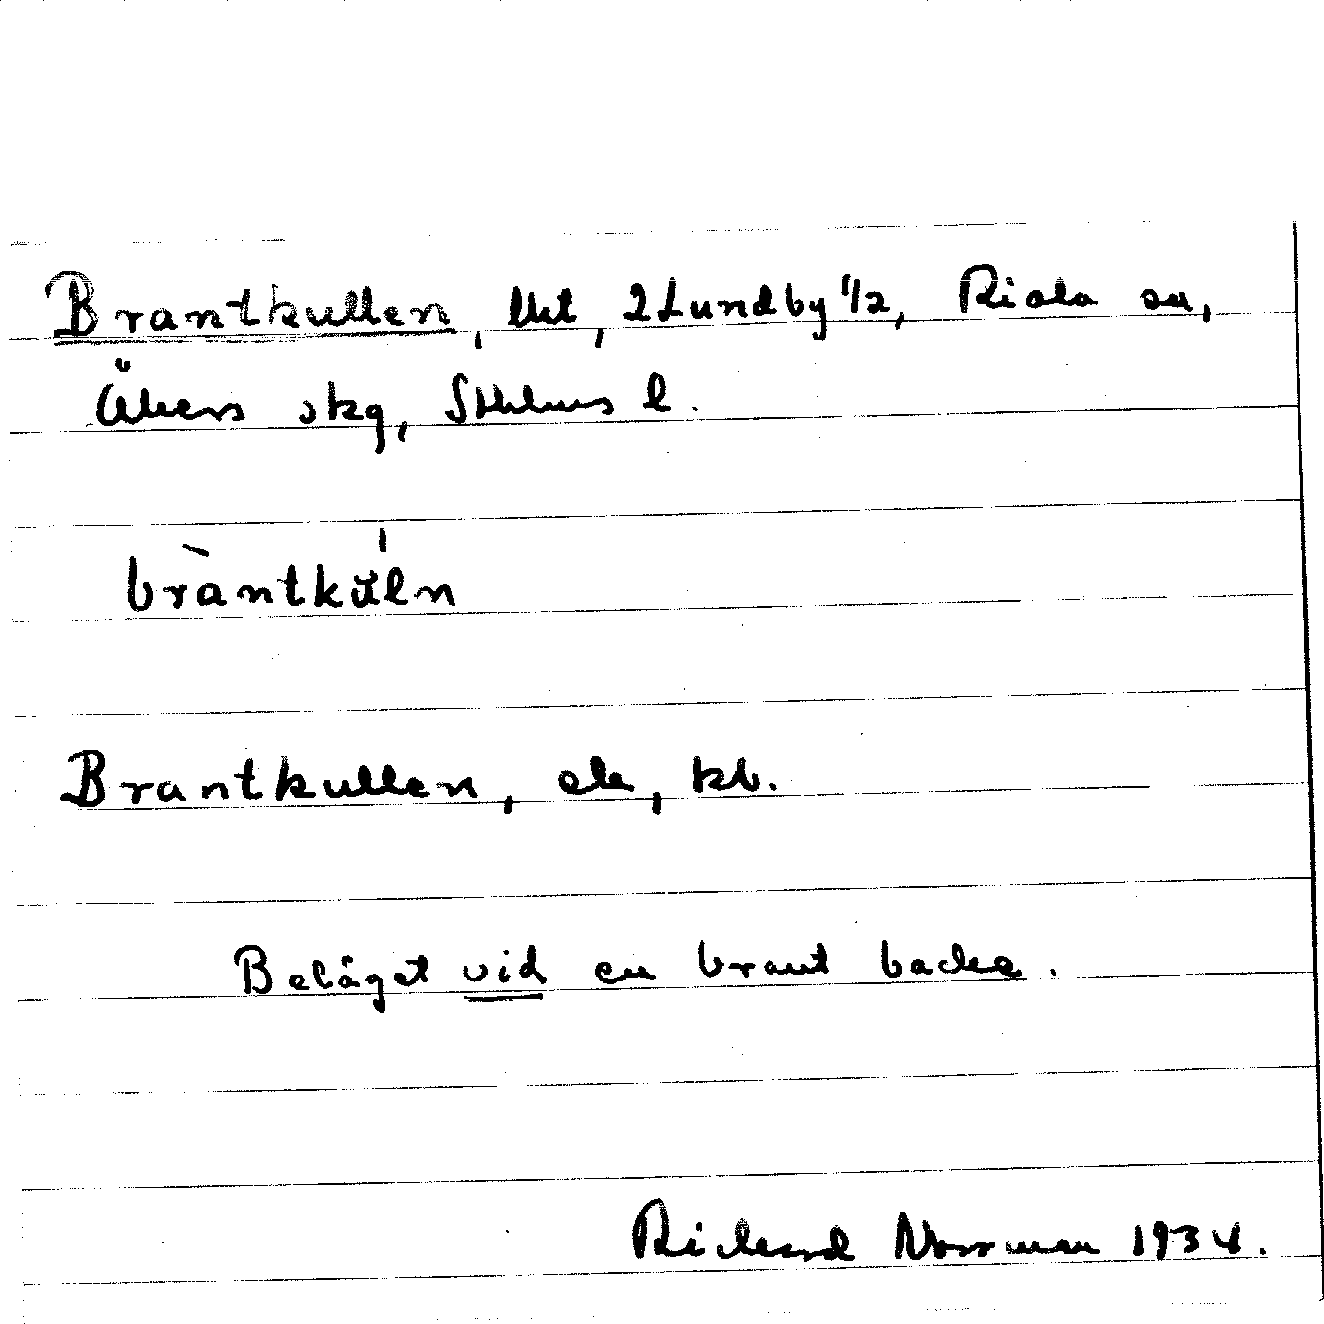 Brantkullen, lht, 2 Lundby 1/2, Riala sn,
Åkers skg, Sthlms l.
bràntkŭ́ln
Brantkullen, ek, kb.
Beläget vid en brant backe.
Richard Norrman 1934.